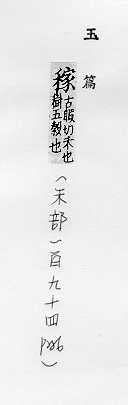 玉篇
稼古暇切禾也
樹五穀也
(禾部一百九十四)